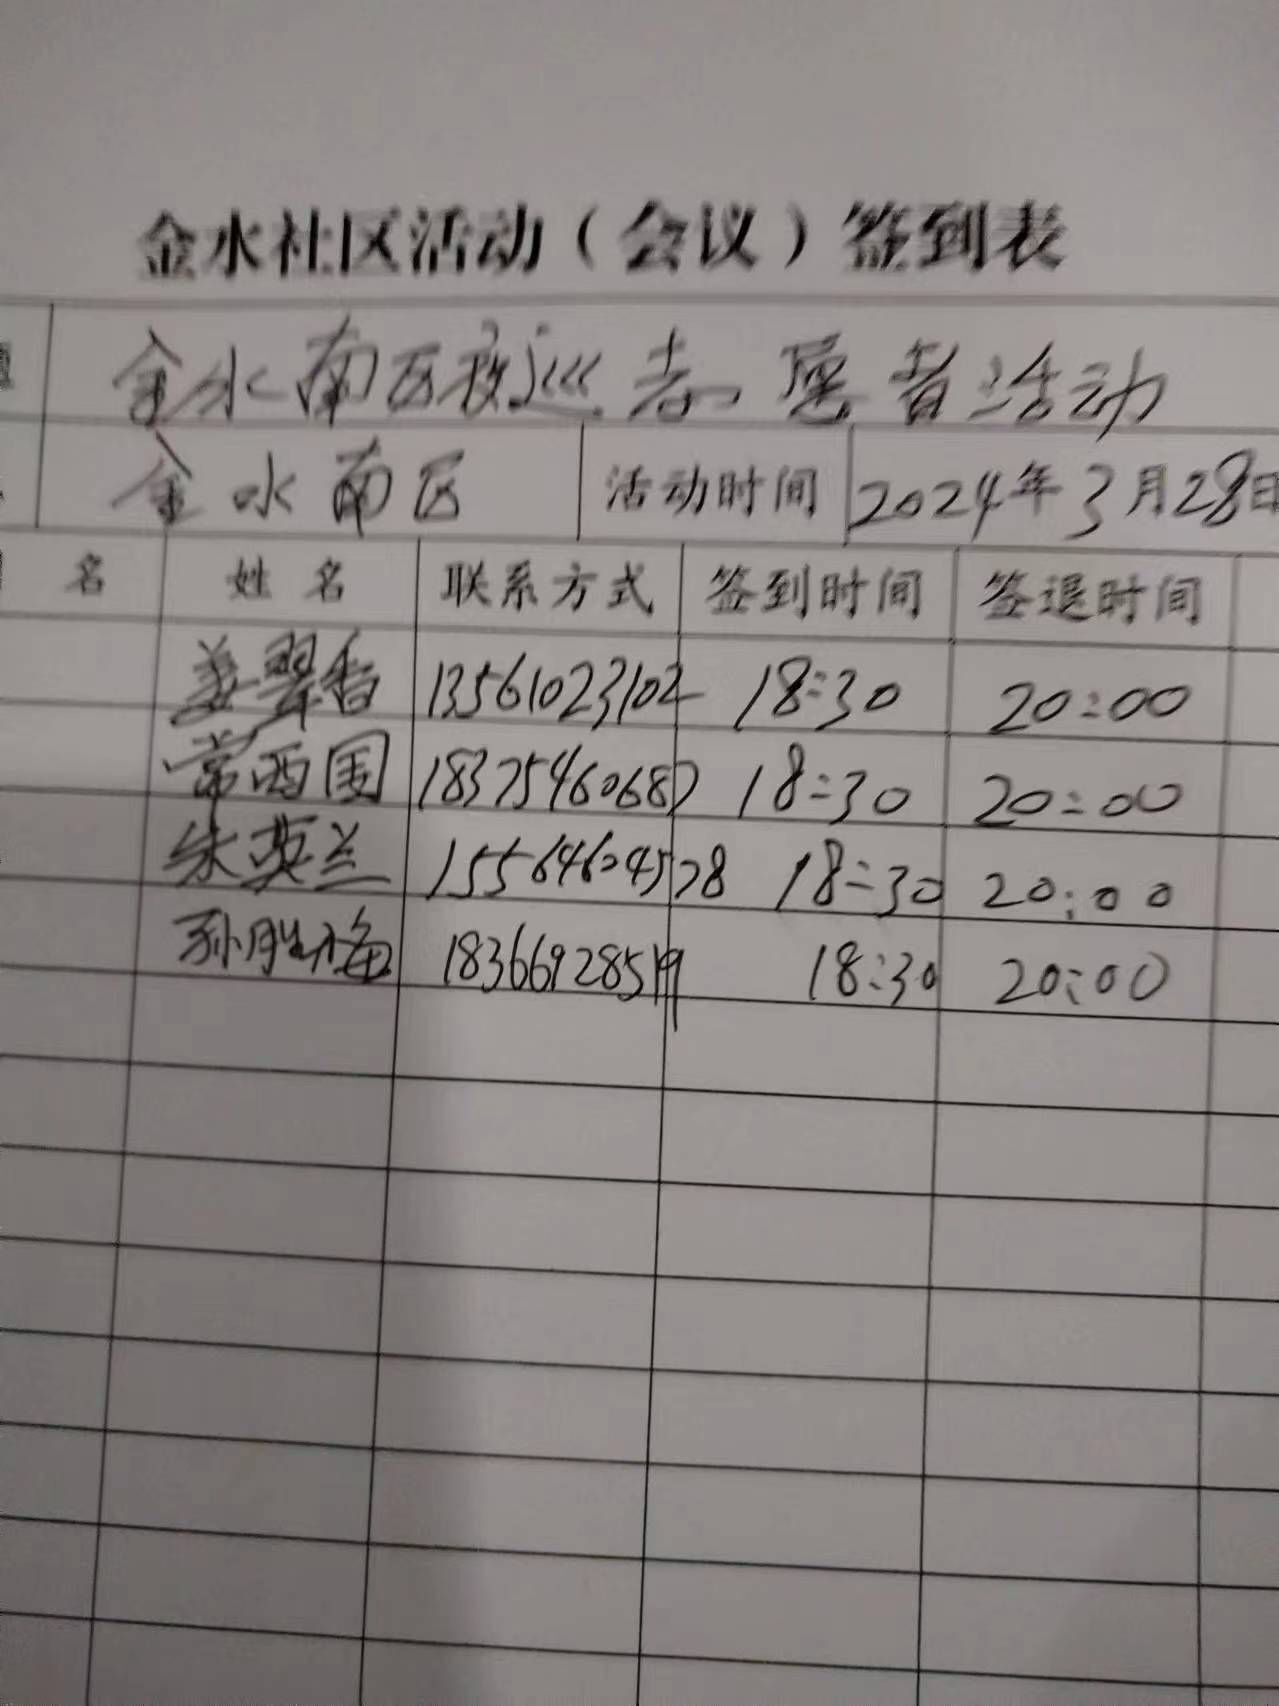 金水社区活动（会议）签到表
金水南区夜巡志愿者活动
金水南区 活动时间 2024年3月28日
名 姓名 联系方式 签到时间 签退时间
姜翠香 13561023102 18:30 20:00
常西国 18375460687 18:30 20:00
朱英兰 15564604578 18:30 20:00
孙胜梅 18366928519 18:30 20:00